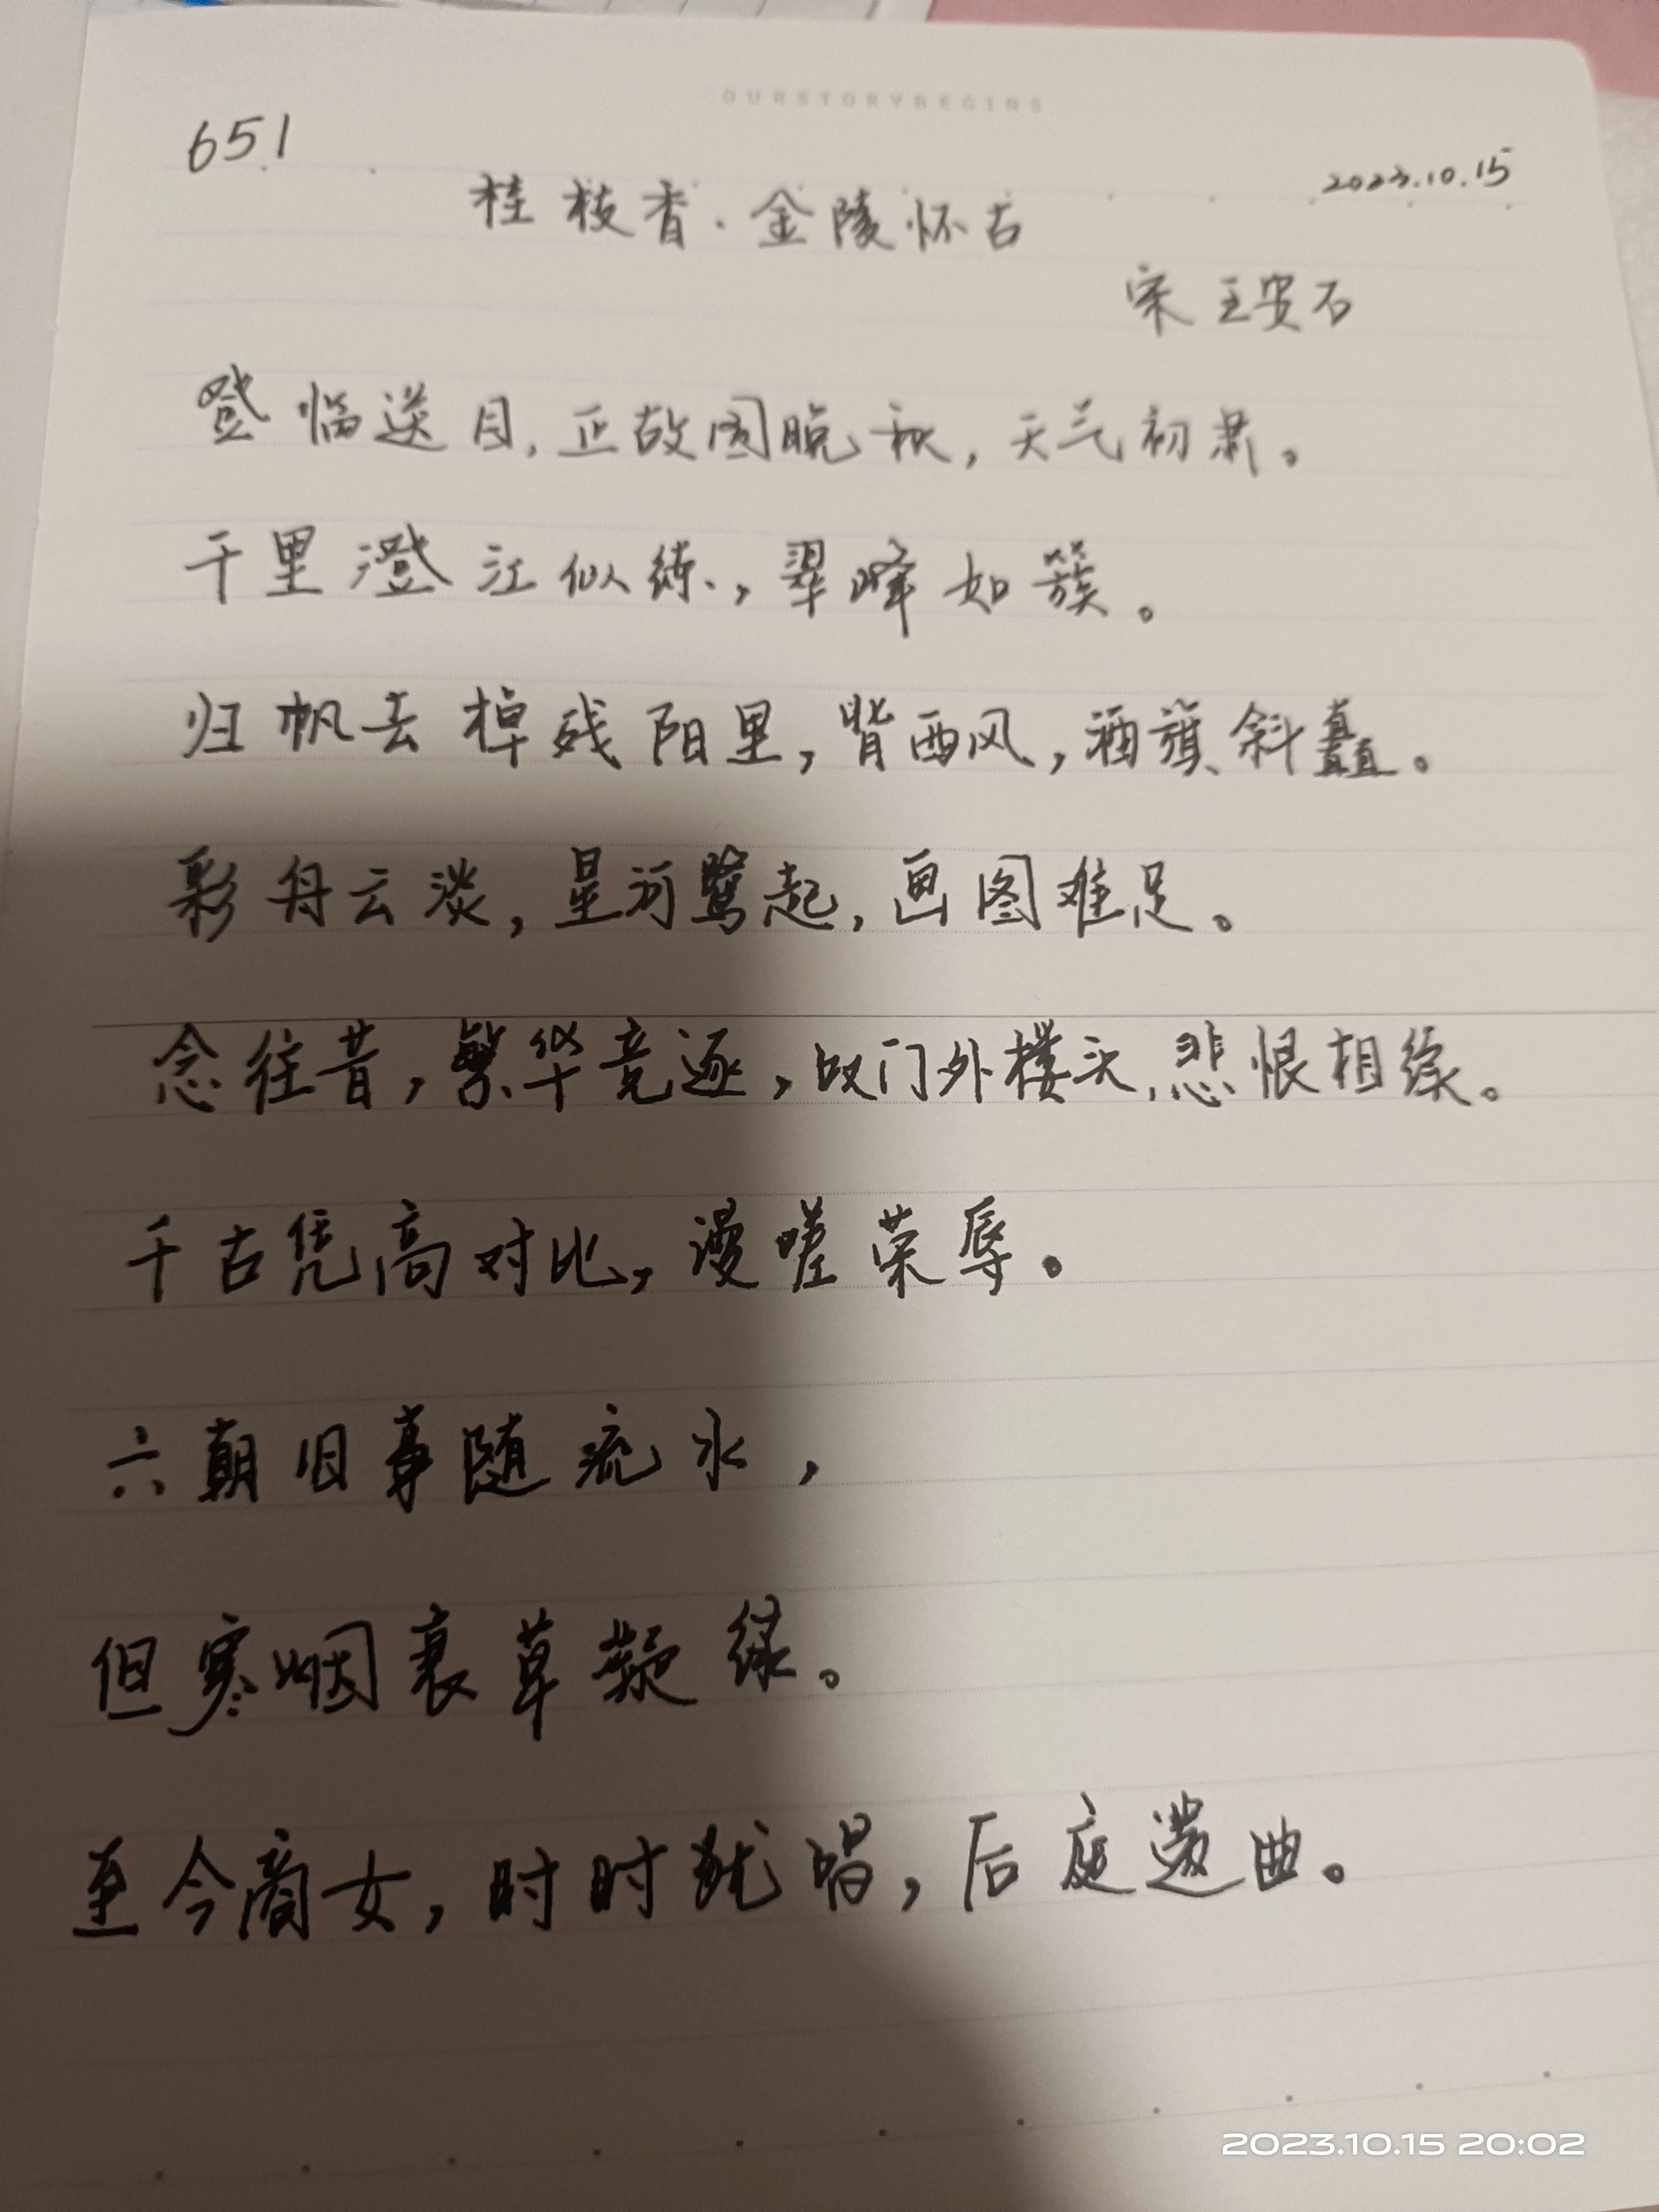 OURSTORYBEGINS
651
2023.10.15
桂枝香·金陵怀古
宋 王安石
登临送目,正故国晚秋,天气初肃。
千里澄江似练,翠峰如簇。
归帆去棹残阳里,背西风,酒旗斜矗。
彩舟云淡,星河鹭起,画图难足。
念往昔,繁华竞逐,叹门外楼头,悲恨相续。
千古凭高对比,漫嗟荣辱。
六朝旧事随流水,
但寒烟衰草凝绿。
至今商女,时时犹唱,后庭遗曲。
2023.10.15 20:02